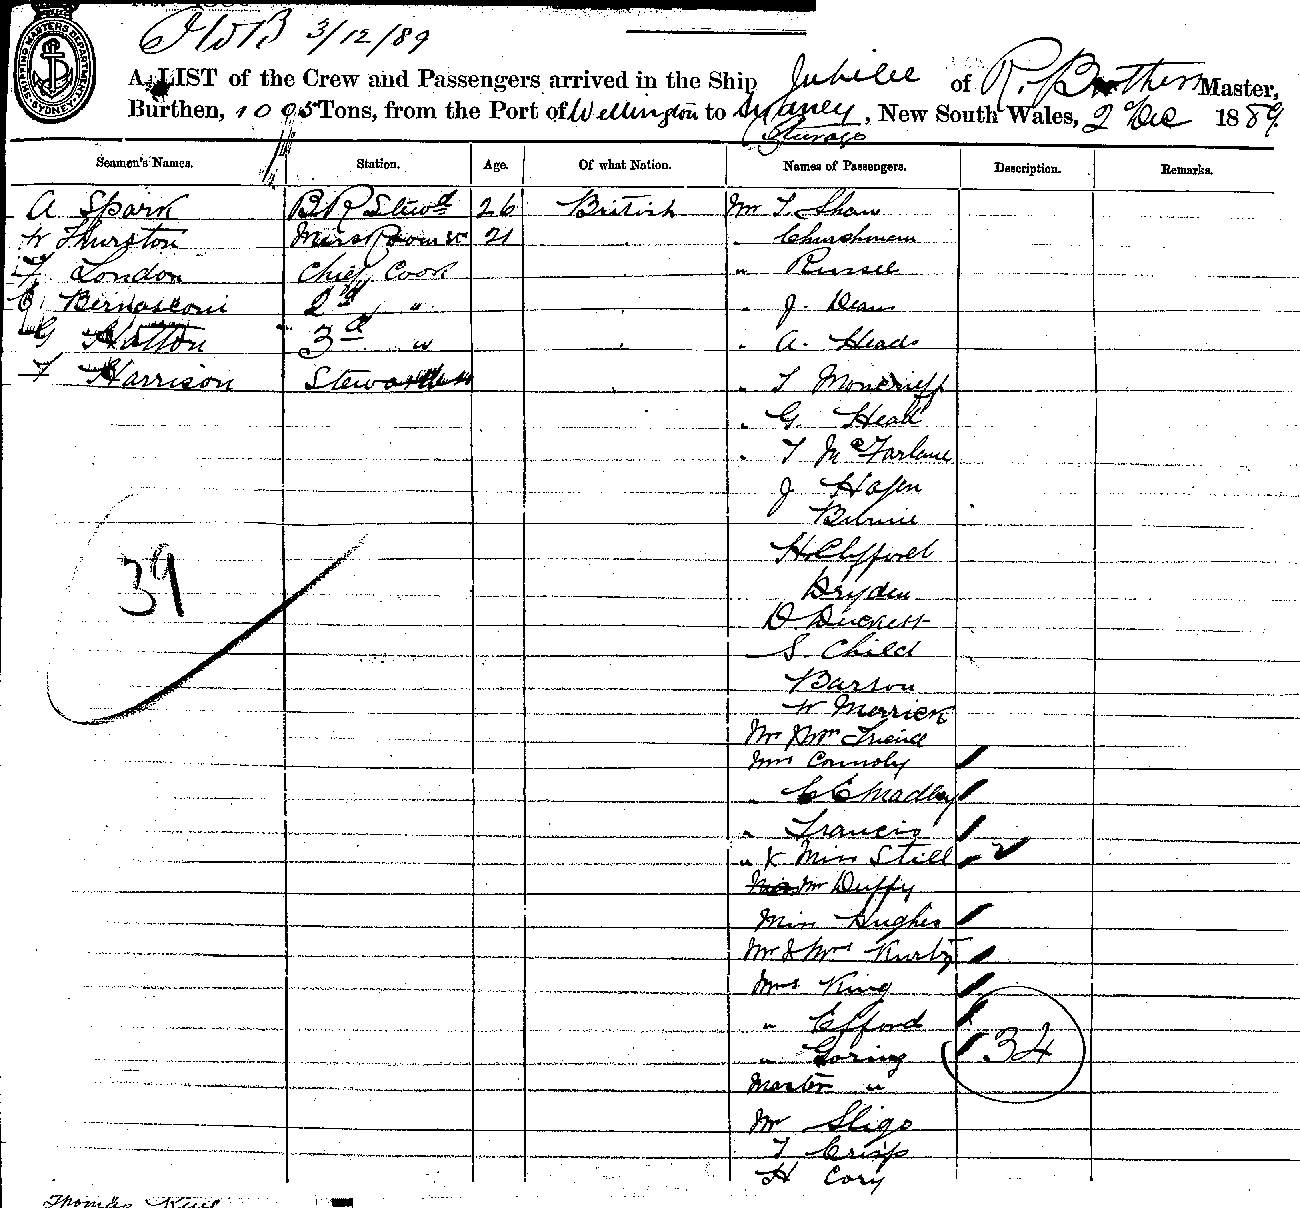 3/12/89
A LIST of the Crew and Passengers arrived in the Ship Jubilee of R. Brothers Master,
Burthen, 1095 Tons, from the Port of Wellington to Sydney, New South Wales, 2 Dec 1889.
Seamen's Names. Station. Age. Of what Nation. Names of Passengers. Description. Remarks.
A Spark B R Stewd 26 British Mr T. Shaw
W Thurston Mess Room St 21 " Churchman
F London Chief Cook " Russel
C Bernasconi 2nd " " J. Dean
G Hatton 3d " " A. Heads
F Harrison Stewardess " T Moncrieff
" G. Head
" T McFarlane
J Hafen
Birnie
H. Clifford
Dryden
D. Duckett
S. Child
Barson
W Merrick
39
Mr & Mrs Friend
Mrs Connoly
" Francis
" & Miss Still 2
Mr Duffy
Miss Hughes
Mr & Mrs Kurby
Mrs King
" Efford
" Goring 34
Master "
Mr Sligo
T Crisp
H Cory
Thomas King